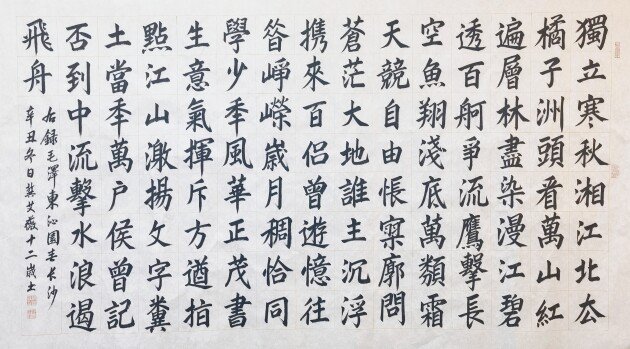 獨立寒秋湘江北厺
橘子洲頭看萬山紅
遍層林盡染漫江碧
透百舸爭流鷹擊長
空魚翔淺底萬類霜
天競自由悵寥廓問
蒼茫大地誰主沉浮
携來百侶曾遊憶往
昝崢嶸歲月稠恰同
學少秊風華正茂書
生意氣揮斥方遒指
點江山激揚文字糞
土當秊萬戶侯曾記
否到中流擊水浪遏
飛舟
右録毛澤東沁園春長沙
辛丑冬日十二歲書